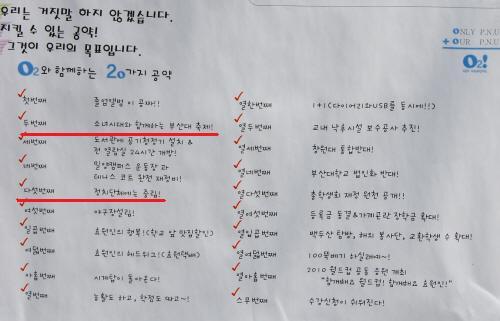 우리는 거짓말 하지 않겠습니다.
지킬 수 있는 공약!
그것이 우리의 목표입니다.
ONLY P.N.U
+ OUR P.N.U
O2!
O2와 함께하는 20가지 공약
첫번째 졸업앨범이 공짜!!
두번째 소녀시대와 함께하는 부산대 축제!
세번째 도서관에 공기청정기 설치 &
전 열람실 24시간 개방!
네번째 밀양캠퍼스 운동장과
테니스 코트 완전 재정비!
다섯번째 정치단체에는 중립!
여섯번째 야구장설립!
일곱번째 효원인의 행복!(학교 앞 맛집할인)
여덟번째 효원인의 헤드위그!(효원택배)
아홉번째 시계탑이 돌아온다!
열번째 농활도 하고, 학점도 따고~!
열한번째 1+1(다이어리와USB를 동시에!!)
열두번째 교내 낙후시설 보수공사 추진!
열세번째 창원대 통합반대!
열네번째 부산대학교 법인화 반대!
열다섯번째 총학생회 재정 완전 공개!!
열여섯번째 등록금 동결&가계곤란 장학금 확대!
열일곱번째 백두산 탐방, 해외 봉사단, 교환학생 수 확대!
열여덟번째 100분배기 하실래예~!
열아홉번째 2010 월드컵 공동 응원 개최
"함께해요 월드컵! 함께해요 효원인!"
스무번째 수강신청이 쉬워진다!